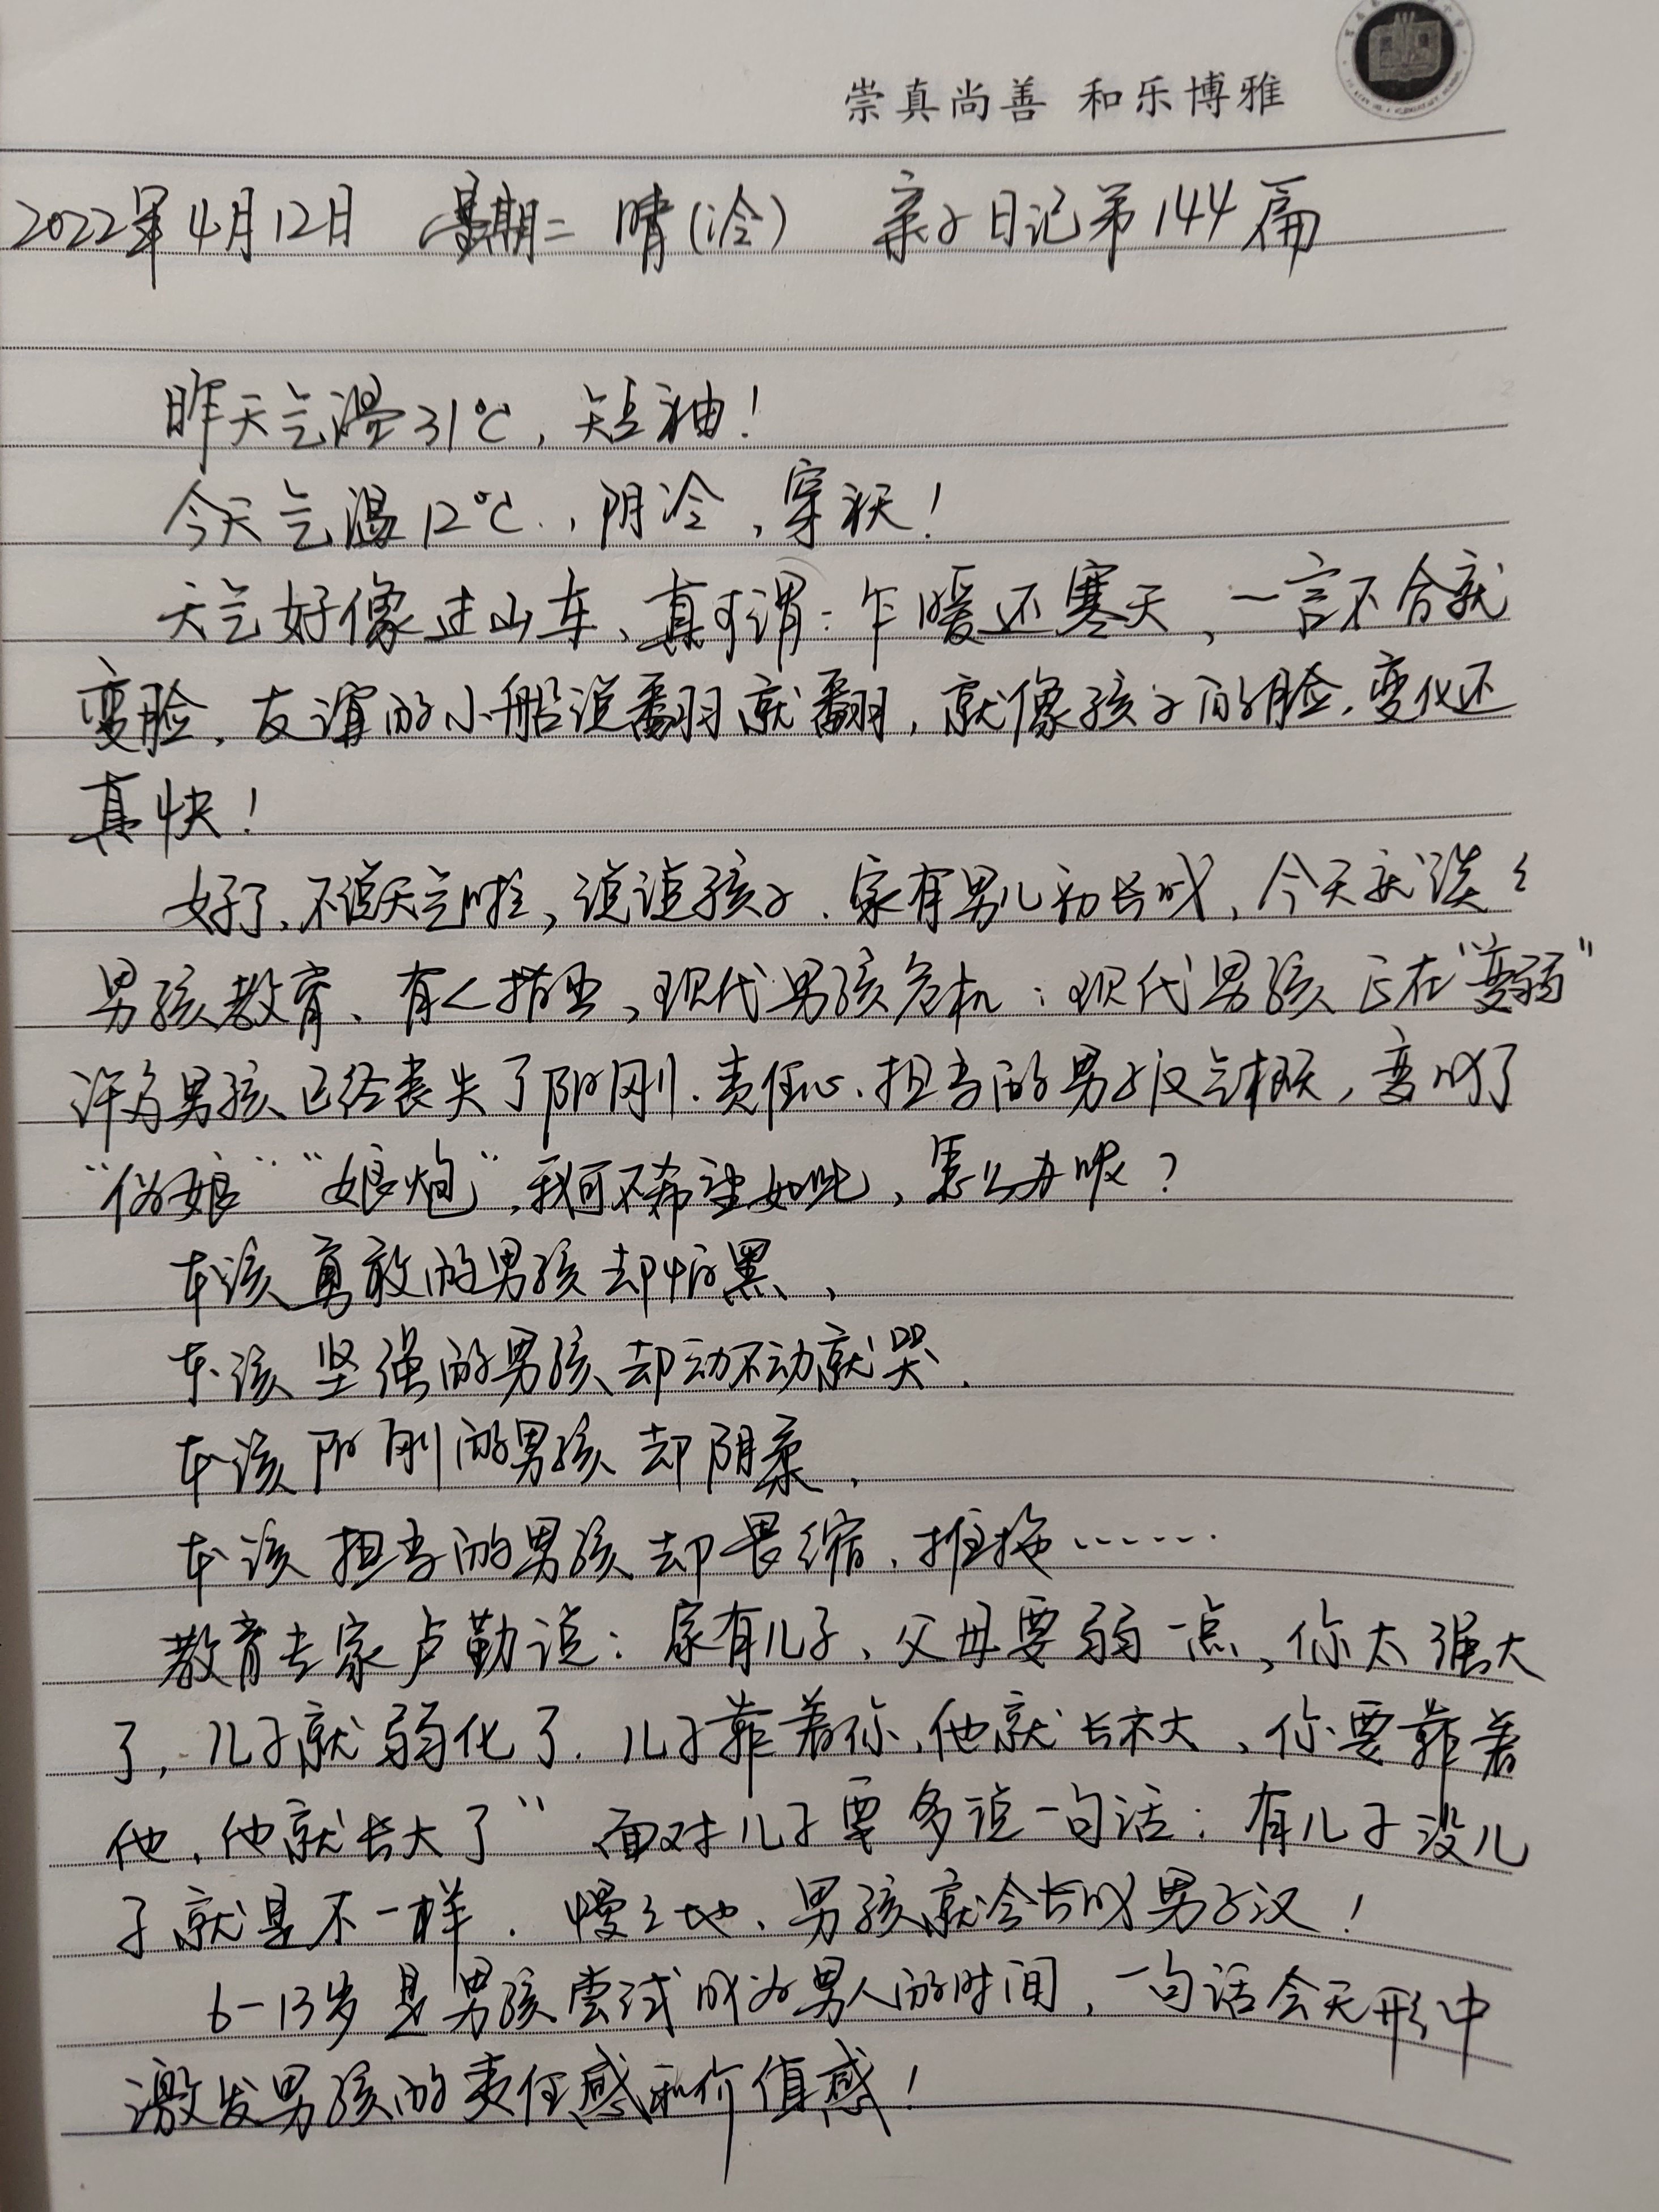 崇真尚善 和乐博雅
2022年4月12日 星期二 晴(冷) 亲子日记第144篇
昨天气温31℃,短袖!
今天气温12℃.,阴冷,穿袄!
天气好像过山车、真可谓:乍暖还寒天,一言不合就
变脸,友谊的小船说翻就翻,就像孩子的脸,变化还
真快!
好了,不说天气啦,说说孩子.家有男儿初长成,今天就谈谈
男孩教育、有人指出,现代男孩危机:现代男孩正在"变弱"
许多男孩已经丧失了阳刚.责任心.担当的男子汉气概,变成了
"伪娘""娘炮",我可不希望如此,怎么办呢?
本该勇敢的男孩却怕黑、
本该坚强的男孩却动不动就哭.
本该阳刚的男孩却阴柔,
本该担当的男孩却畏缩、推拖……
教育专家卢勤说:家有儿子、父母要弱一点,你太强大
了,儿子就弱化了.儿子靠着你,他就长不大,你要靠着
他,他就长大了"面对儿子要多说一句话:有儿子没儿
子就是不一样.慢慢地、男孩就会长成男子汉!
6-13岁是男孩尝试成为男人的时间,一句话会无形中
激发男孩的责任感和价值感!